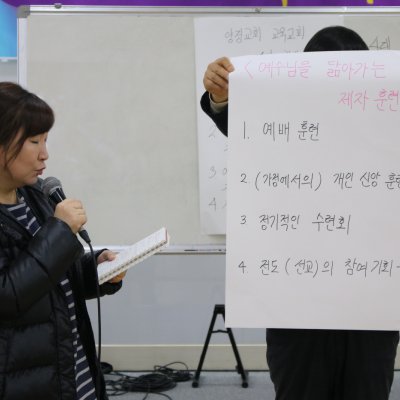 양경교회 교육교회
<예수님을 닮아가는
제자 훈련
1. 예배 훈련
2. (가정에서의) 개인 신앙 훈련
3 정기적인 수련회
4. 전도 (선교)의 참여 기회